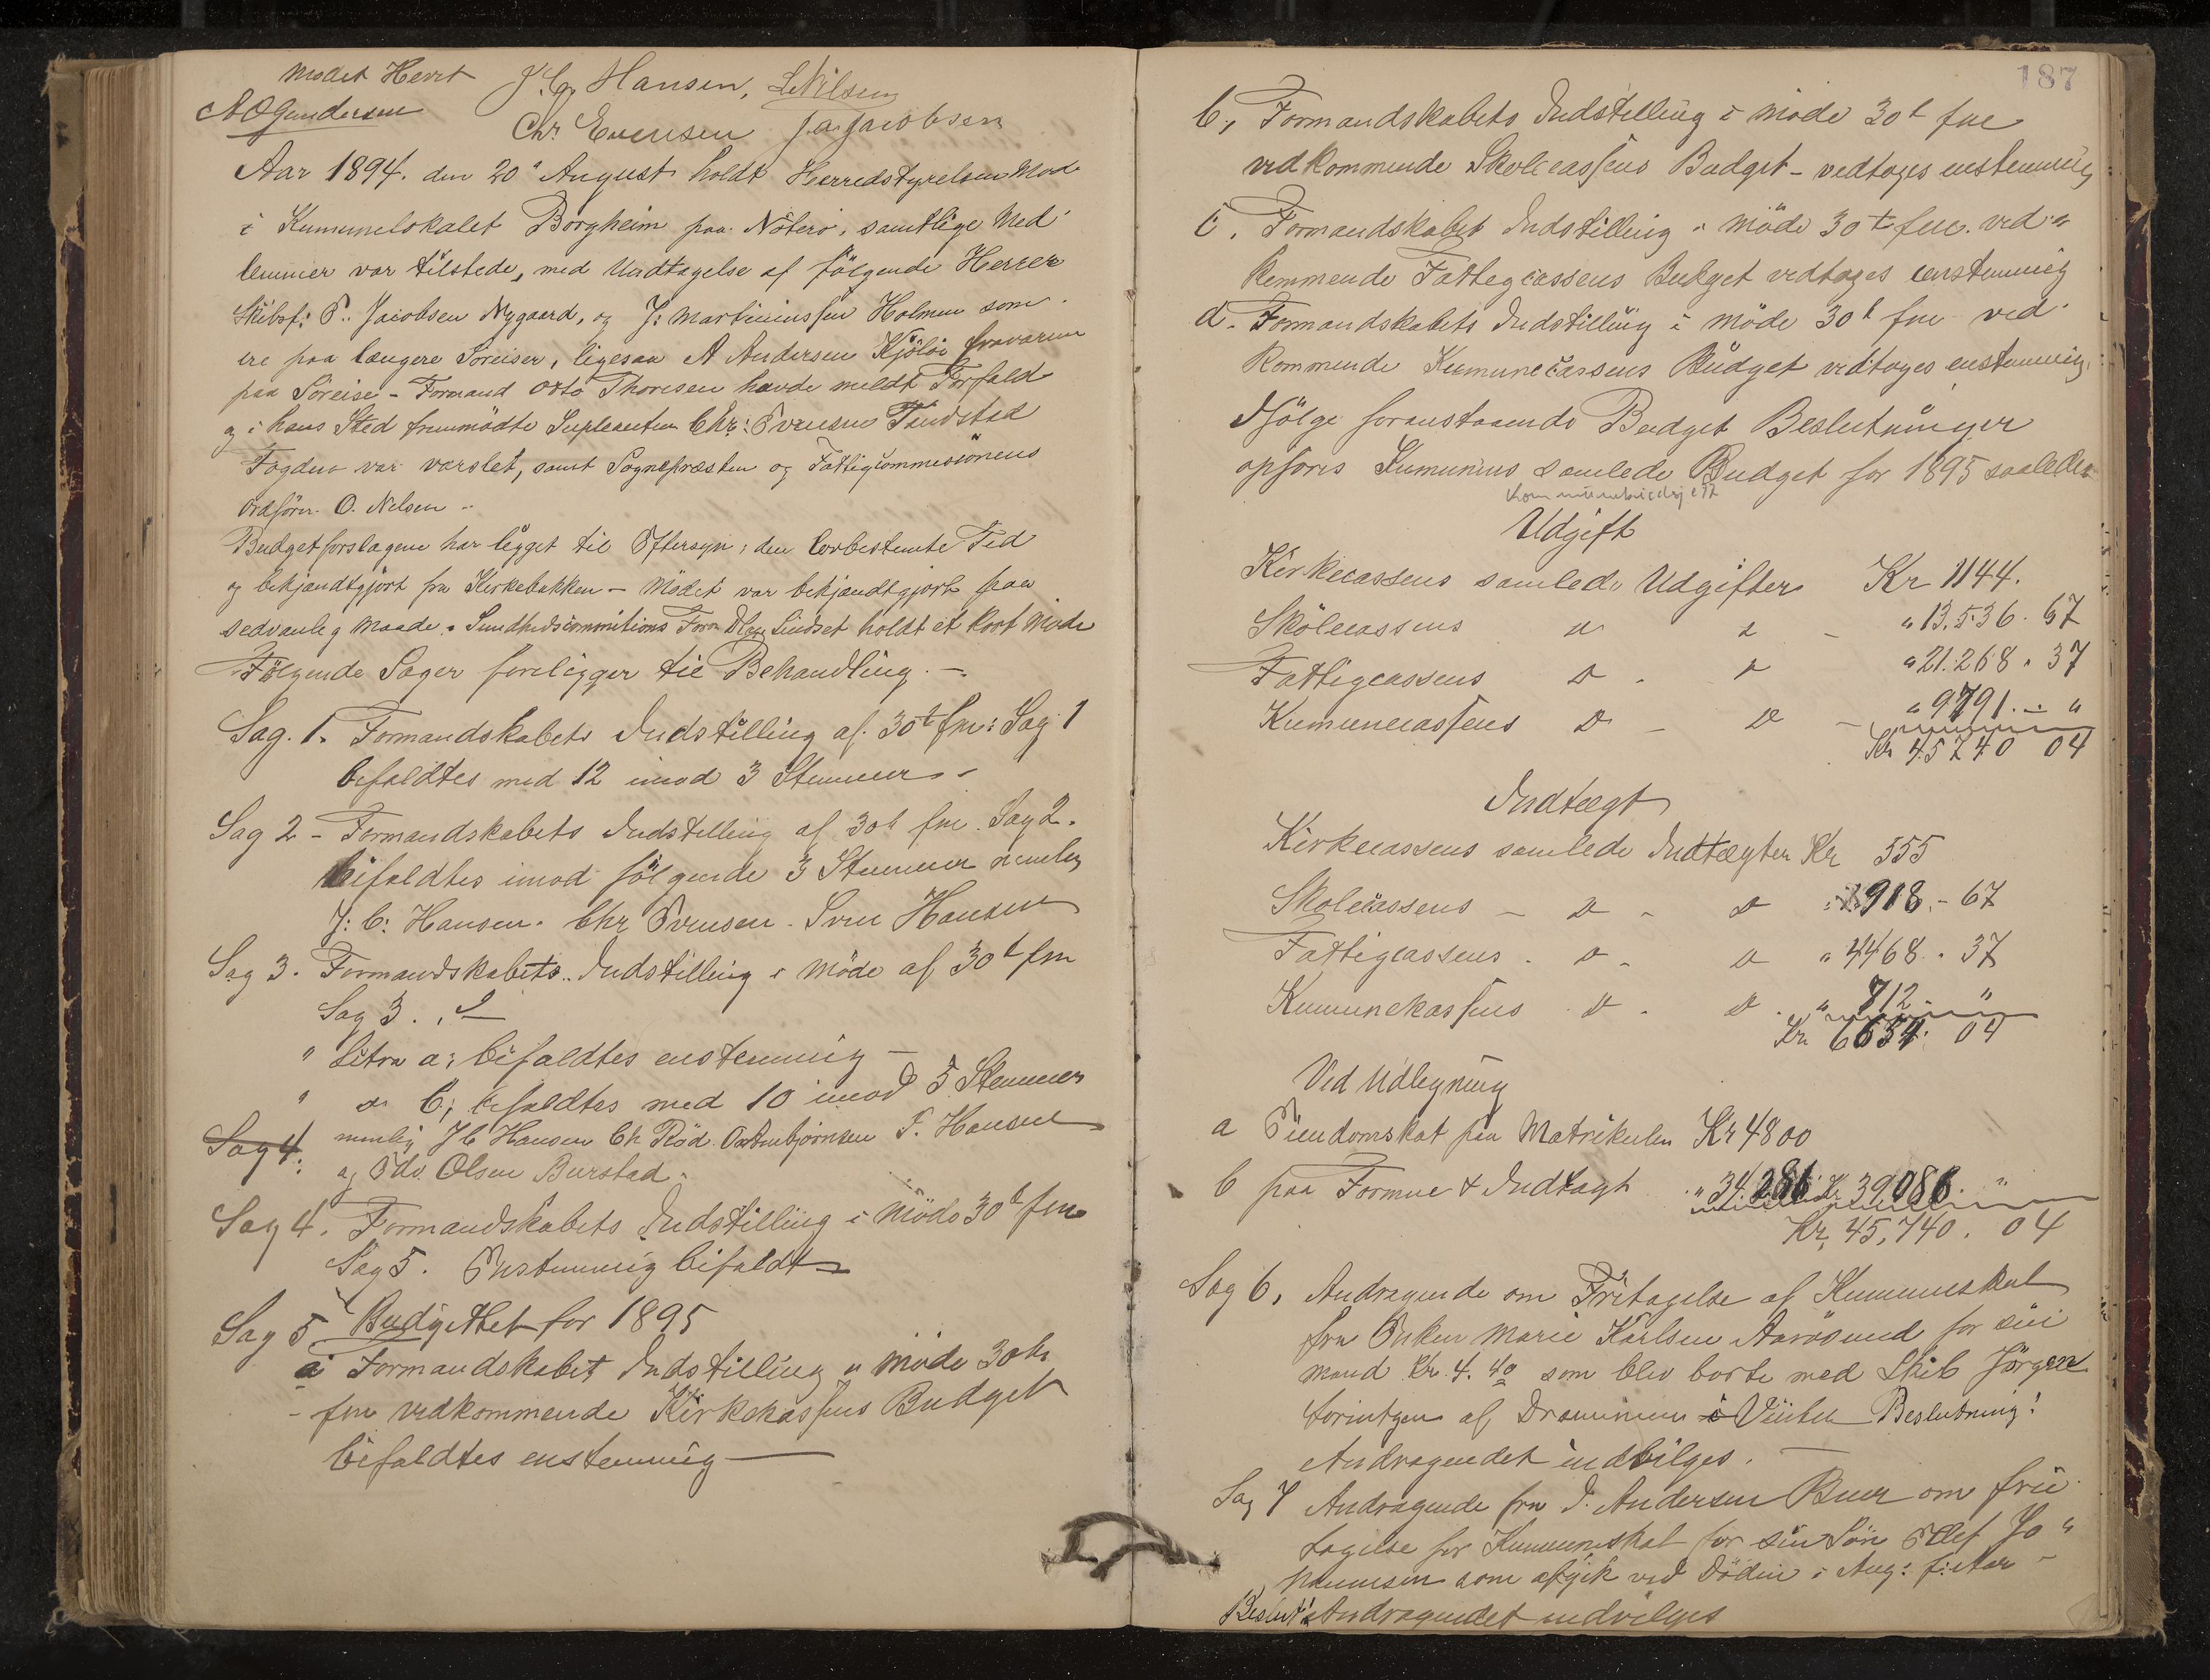 mødet Hevet J. C. Hansen, L. Nilsen
A O Gundersen Chr. Evensen J. A. Jacobsen
Aar 1894. den 20de August holdt Herredstyrelsen Møde
i Kumunelokalet Borgheim paa Nøterø, samtlige Med
lemmer var tilstede, med Undtagelse af følgende Herrer
Skibsf: P. Jacobsen Nygaard, og J: Martiniussen Holmen som
ere paa længere Søreiser, ligesaa A Andersen Kjøløe fraværen
paa Søreise - Formand Otto Thoresen havde meldt Forfald
og i hans Sted fremmødte Supleanten Chr: Evensen
Fogden var varslet, samt Sognepræsten og Fattigcommisionens
Ordfører O. Nilsen -
Budgetforslagene har ligget til Eftersyn i den lovbestemte Tid
og bekjendtgjort fra Kirkebakken - Mødet var bekjendtgjort paa
sedvanlig Maade. Sundhedscommitions Form Lindset holdt et kort Møde
Følgende Sager foreligger til Behandling. -
Sag. 1. Formandskabets Indstilling af 30te fm: Sag 1
bifaldtes med 12 imod 3 Stemmer -
Sag 2 - Formandskabets Indstilling af 30te fm. Sag 2.
bifaldtes imod følgende 3 Stemmer nemlig
J: C: Hansen. Chr Evensen - Sven Hansen
Sag 3. Formandskabets Indstilling i Møde af 30te fm
Sag 3.
" Litra a: bifaldtes enstemmig -
" " b; bifaldtes med 10 imod 5 Stemmer
Sag 4: nemlig J C Hansen Ch Rød. O. Anbjørnsen S. Hansen
og Edv. Olsen Burstad.
Sag 4. Formandskabets Indstilling i Møde 30te fm
Sag 5. Enstemmig bifaldt
Sag 5 Budgettet for 1895
a Formandskabet Indstilling i møde 30te
- fm vedkommende Kirkekassens Budget
bifaldtes enstemmig
187
b, Formandskabets Indstilling i møde 30t fm
vedkommende Skolecassens Budget - vedtoges enstemmig
c. Formandskabet Indstilling i Møde 30te fm. ved
kommende Fattigcassens Budget vedtoges enstemmig
d. Formandskabets Indstilling i møde 30t fm ved
kommende Kumunecassens Budget vedtoges enstemmig.
Ifølge foranstaaende Budget Beslutninger
opføres Kumunens samlede Budget for 1895 saaledes
Kommunebudsjett
Udgift
Kirkecassens samlede Udgifter Kr 1144.
Skolecassens " " - " 13.536. 67
Fattigcassens " - " " 21.268 . 37
Kumunecassens " - " - " 9791. - "
Kr 45740 04
Indtægt
Kirkecassens samlede Indtægter Kr 555
Skolecassens - " - " " 918. - 67
Fattigcassens - " - " " 4468. - 37
Kumunekassens " - " . " 712 - "
Kr 6654. 04
Ved Udlegning
a Eiendomskat paa Matrikulen Kr 4800
b paa Formue & Indtægt " 34.286 Kr 39,086. "
Kr, 45,740. 04
Sag 6. Andragende om Fritagelse af Kumuneskat
fra Enken Marie Karlsen Aarøsund for sin
mand Kr. 4. 40 som blev borte med Skib Jørgen
af Drammen i Vinter Beslutning:
Andragendet indvilges.
Sag 7 Andragende fra J. Andersen Buer om fri
tagelse for Kumuneskat for sin Søn Olef Jo "
hannesen som afgik ved Døden i Aug: f: Aar -
Beslut: Andragendet indvilges